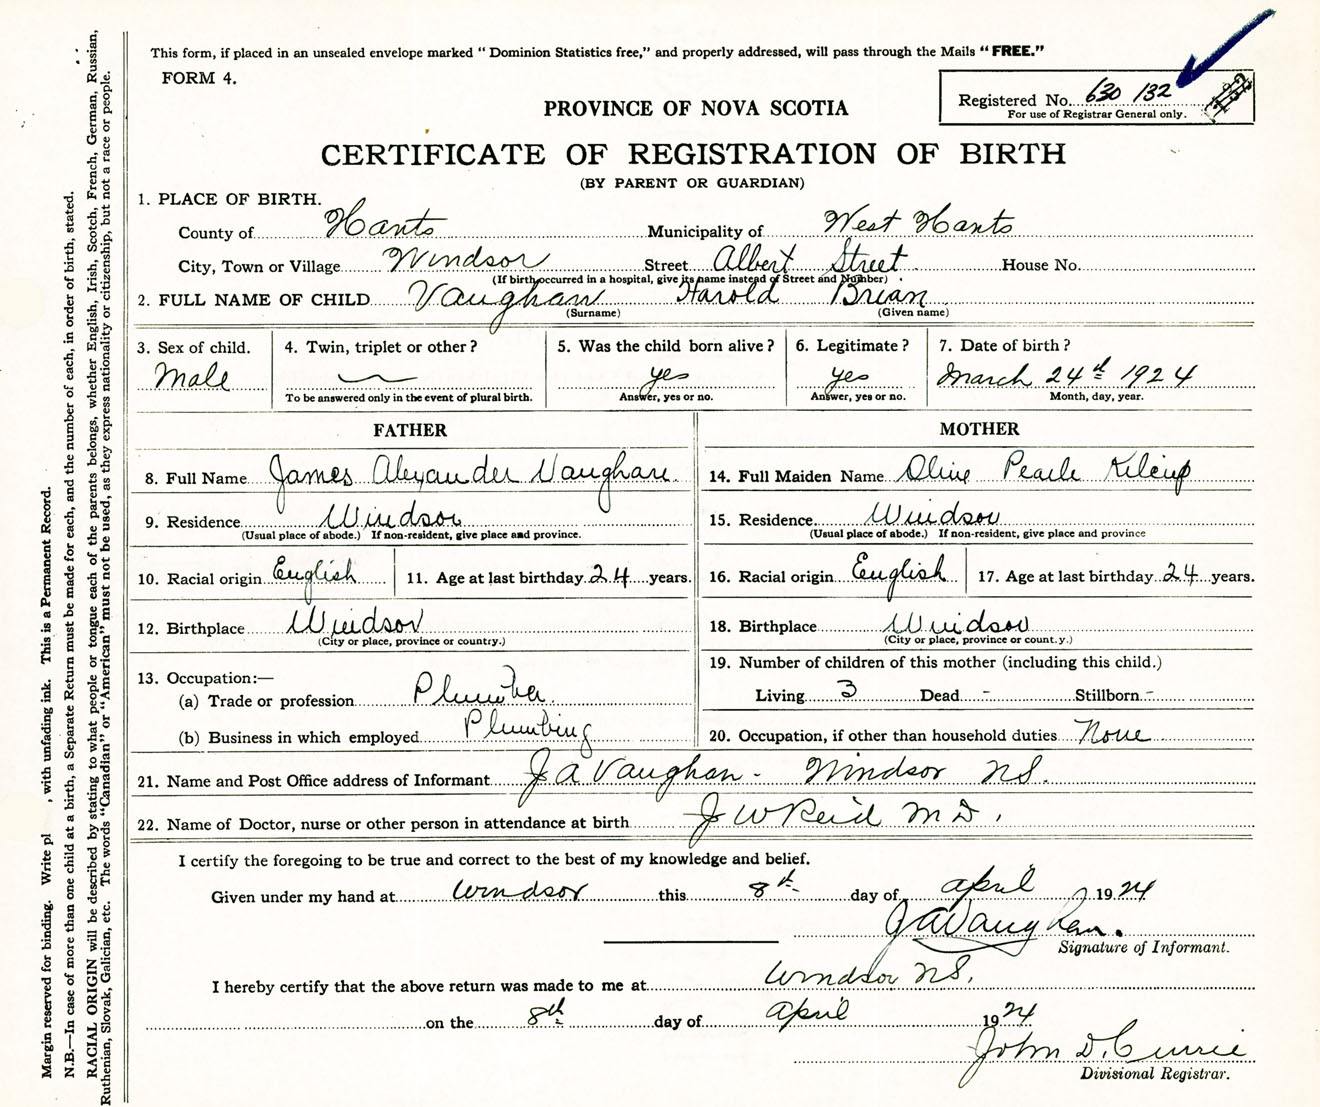 This form, if placed in an unsealed envelope marked “ Dominion Statistics free,” and properly addressed, will pass through the Mails “ FREE.”
FORM 4.
Registered No. 630 132
For use of Registrar General only.
PROVINCE OF NOVA SCOTIA
CERTIFICATE OF REGISTRATION OF BIRTH
(BY PARENT OR GUARDIAN)
1. PLACE OF BIRTH.
County of Hants Municipality of West Hants
City, Town or Village Windsor Street Albert Street House No.
(If birth occurred in a hospital, give its name instead of Street and Number)
2. FULL NAME OF CHILD Vaughan Harold Brian
(Surname) (Given name)
3. Sex of child. 4. Twin, triplet or other ? 5. Was the child born alive ? 6. Legitimate ? 7. Date of birth ?
Male yes yes March 24th 1924
To be answered only in the event of plural birth. Answer, yes or no. Answer, yes or no. Month, day, year.
FATHER MOTHER
8. Full Name James Alexander Vaughan. 14. Full Maiden Name Olive Pearle Kilcup
9. Residence Windsor 15. Residence Windsor
(Usual place of abode.) If non-resident, give place and province. (Usual place of abode.) If non-resident, give place and province
10. Racial origin English 11. Age at last birthday 24 years. 16. Racial origin English 17. Age at last birthday 24 years.
12. Birthplace Windsor 18. Birthplace Windsor
(City or place, province or country.) (City or place, province or count.y.)
19. Number of children of this mother (including this child.)
13. Occupation:—
(a) Trade or profession Plumber Living 3 Dead - Stillborn -
(b) Business in which employed Plumbing 20. Occupation, if other than household duties None
21. Name and Post Office address of Informant J A Vaughan - Windsor NS.
22. Name of Doctor, nurse or other person in attendance at birth J W Reid M D.
I certify the foregoing to be true and correct to the best of my knowledge and belief.
Given under my hand at Windsor this 8th day of april 1924
J A Vaughan.
Signature of Informant.
I hereby certify that the above return was made to me at Windsor NS.
on the 8th day of april 1924
John D. Currie
Divisional Registrar.
Margin reserved for binding. Write pl , with unfading ink. This is a Permanent Record.
N.B.—In case of more than one child at a birth, a Separate Return must be made for each, and the number of each, in order of birth, stated.
RACIAL ORIGIN will be described by stating to what people or tongue each of the parents belongs, whether English, Irish, Scotch, French, German, Russian,
Ruthenian, Slovak, Galician, etc. The words “Canadian” or “American” must not be used, as they express nationality or citizenship, but not a race or people.